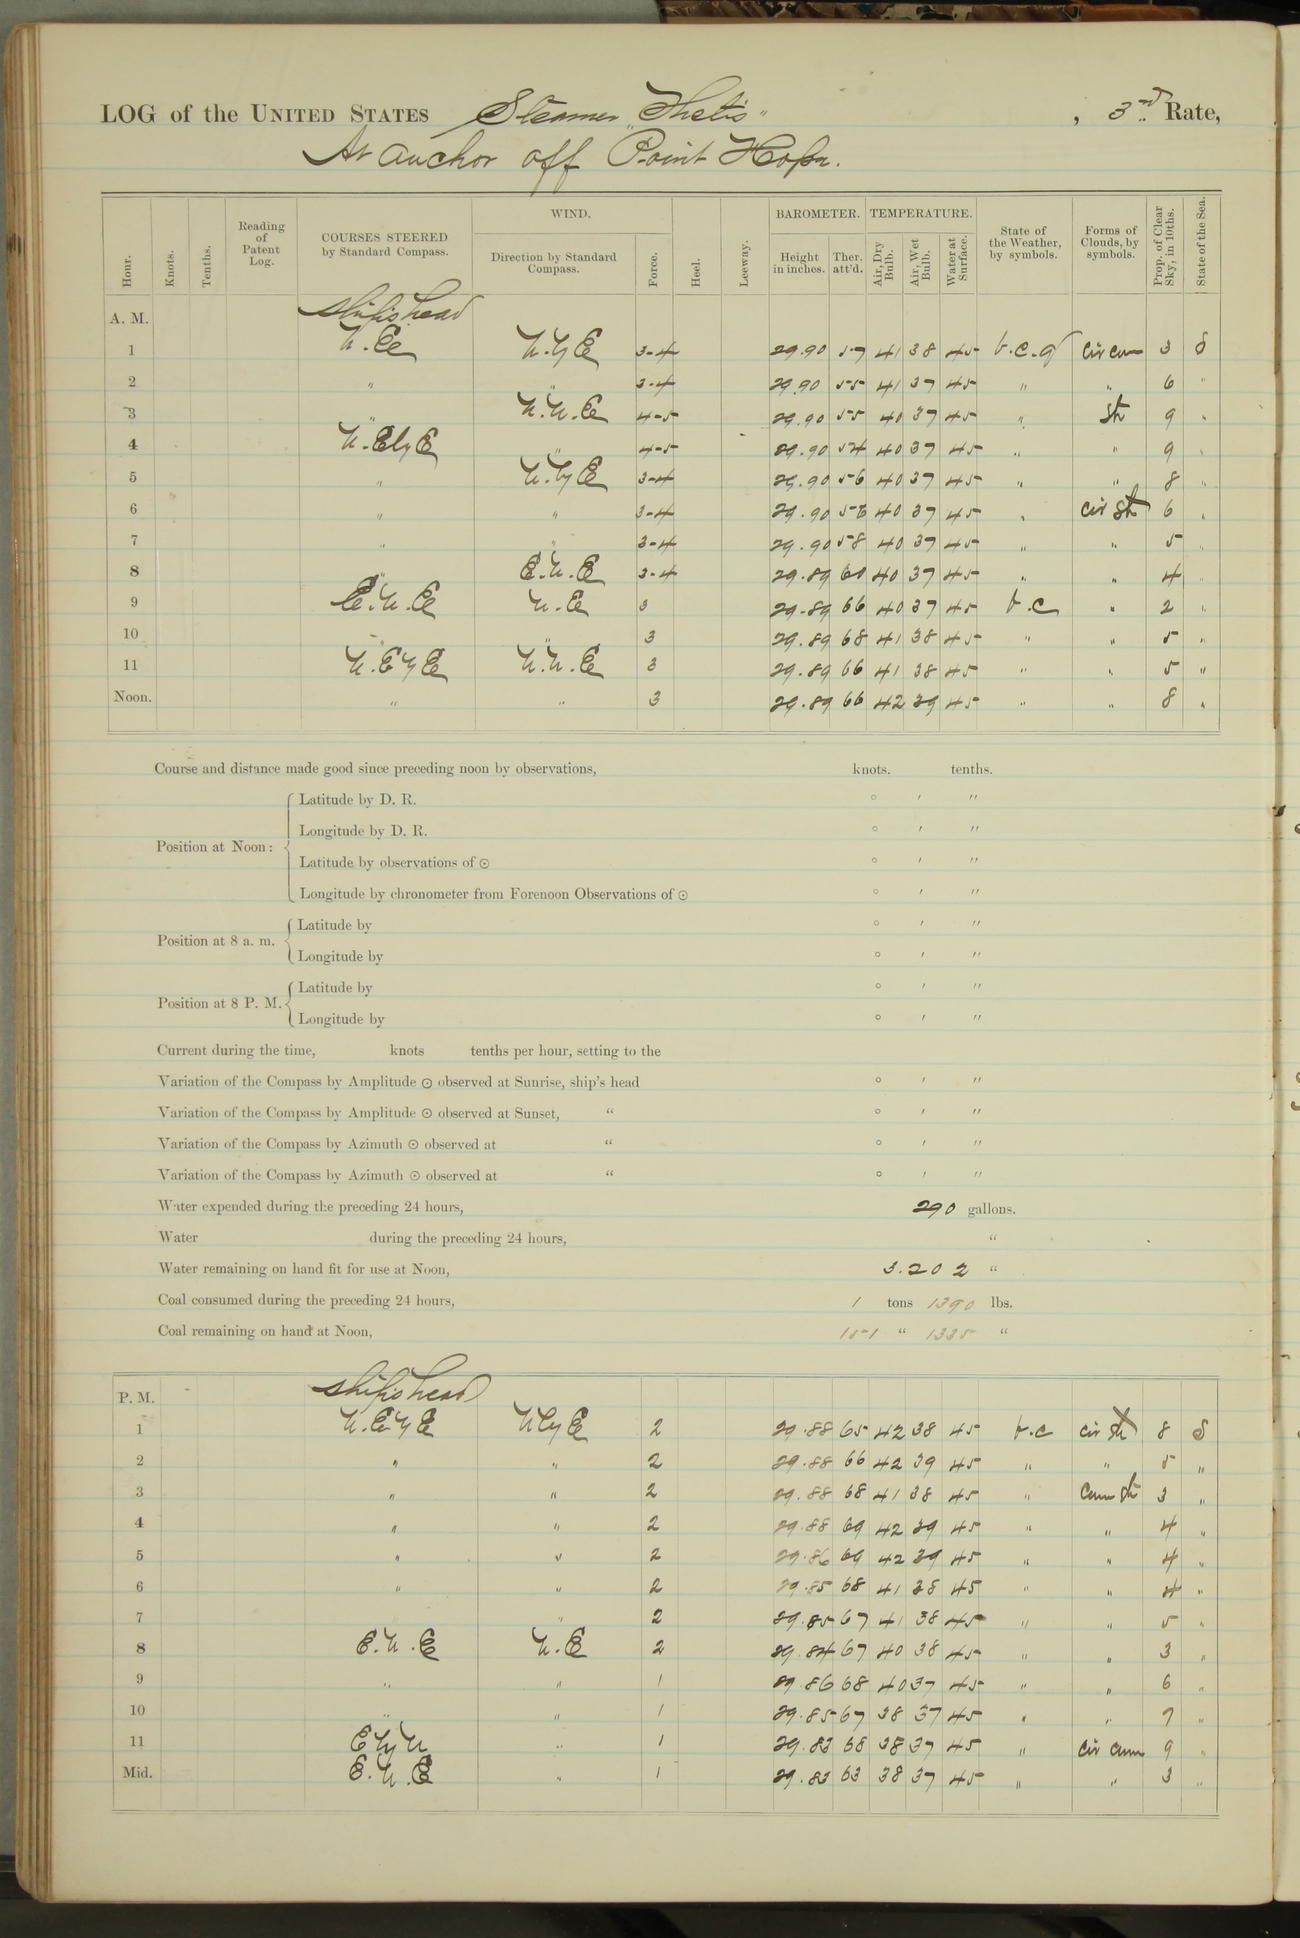 LOG of the UNITED STATES Steamer "Thetis" , 3rd Rate,
At anchor off Point Hope.
Hour. Knots. Tenths. Reading of Patent Log. COURSES STEERED by Standard Compass. WIND. Direction by Standard Compass. Force. Heel. Leeway. BAROMETER. Height in inches. Ther. att'd. TEMPERATURE. Air, Dry Bulb. Air, Wet Bulb. Water at Surface. State of the Weather, by symbols. Forms of Clouds, by symbols. Prop. of Clear Sky, in 10ths. State of the Sea.
A. M. Ship's head
1 N.E N.y E 3-4 29.90 57 41 38 45 b.c.q cir cum 3 S
2 " " 3-4 29.90 55 41 37 45 " " 6 "
3 " N.N.E 4-5 29.90 55 40 37 45 " Str 9 "
4 N.E by E " 4-5 29.90 54 40 37 45 " " 9 "
5 " N. by E 3-4 29.90 56 40 37 45 " " 8 "
6 " " 3-4 29.90 58 40 37 45 " cir Str 6 "
7 " " 3-4 29.90 58 40 37 45 " " 5 "
8 " E.N.E 3-4 29.89 60 40 37 45 " " 4 "
9 E.N.E N.E 3 29.89 66 40 37 45 b.c " 2 "
10 " " 3 29.89 68 41 38 45 " " 5 "
11 N.E y E N.N.E 3 29.89 66 41 38 45 " " 5 "
Noon. " " 3 29.89 66 42 39 45 " " 8 "
Course and distance made good since preceding noon by observations, knots. tenths.
Position at Noon: Latitude by D. R. ° ′ ″
Longitude by D. R. ° ′ ″
Latitude by observations of ☉ ° ′ ″
Longitude by chronometer from Forenoon Observations of ☉ ° ′ ″
Position at 8 a. m. Latitude by ° ′ ″
Longitude by ° ′ ″
Position at 8 P. M. Latitude by ° ′ ″
Longitude by ° ′ ″
Current during the time, knots tenths per hour, setting to the
Variation of the Compass by Amplitude ☉ observed at Sunrise, ship's head ° ′ ″
Variation of the Compass by Amplitude ☉ observed at Sunset, " ° ′ ″
Variation of the Compass by Azimuth ☉ observed at " ° ′ ″
Variation of the Compass by Azimuth ☉ observed at " ° ′ ″
Water expended during the preceding 24 hours, 290 gallons.
Water during the preceding 24 hours, "
Water remaining on hand fit for use at Noon, 3.202 "
Coal consumed during the preceding 24 hours, 1 tons 1390 lbs.
Coal remaining on hand at Noon, 151 " 1335 "
P. M. Ship's head
1 N.E y E N by E 2 29.88 65 42 38 45 b.c cir str 8 S
2 " " 2 29.88 66 42 39 45 " " 5 "
3 " " 2 29.88 68 41 38 45 " cum str 3 "
4 " " 2 29.88 69 42 39 45 " " 4 "
5 " " 2 29.86 69 42 39 45 " " 4 "
6 " " 2 29.85 68 41 38 45 " " 4 "
7 " 2 29.85 67 41 38 45 " " 5 "
8 E.N.E N.E 2 29.84 67 40 38 45 " " 3 "
9 " " 1 29.86 68 40 37 45 " " 6 "
10 " " 1 29.85 67 38 37 45 " " 7 "
11 E by N " 1 29.83 68 38 37 45 " cir cum 9 "
Mid. E.N.E " 1 29.83 63 38 37 45 " " 3 "